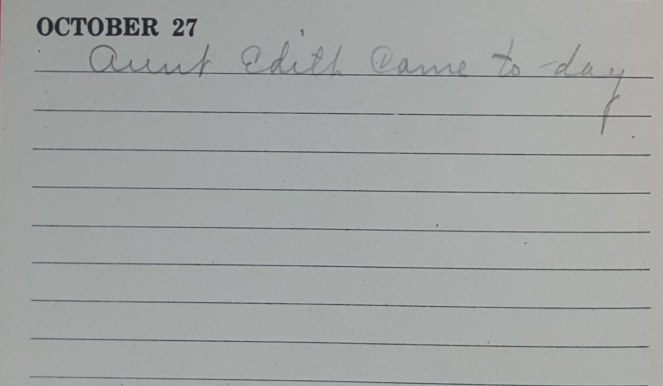 OCTOBER 27
Aunt Edith Came to-day